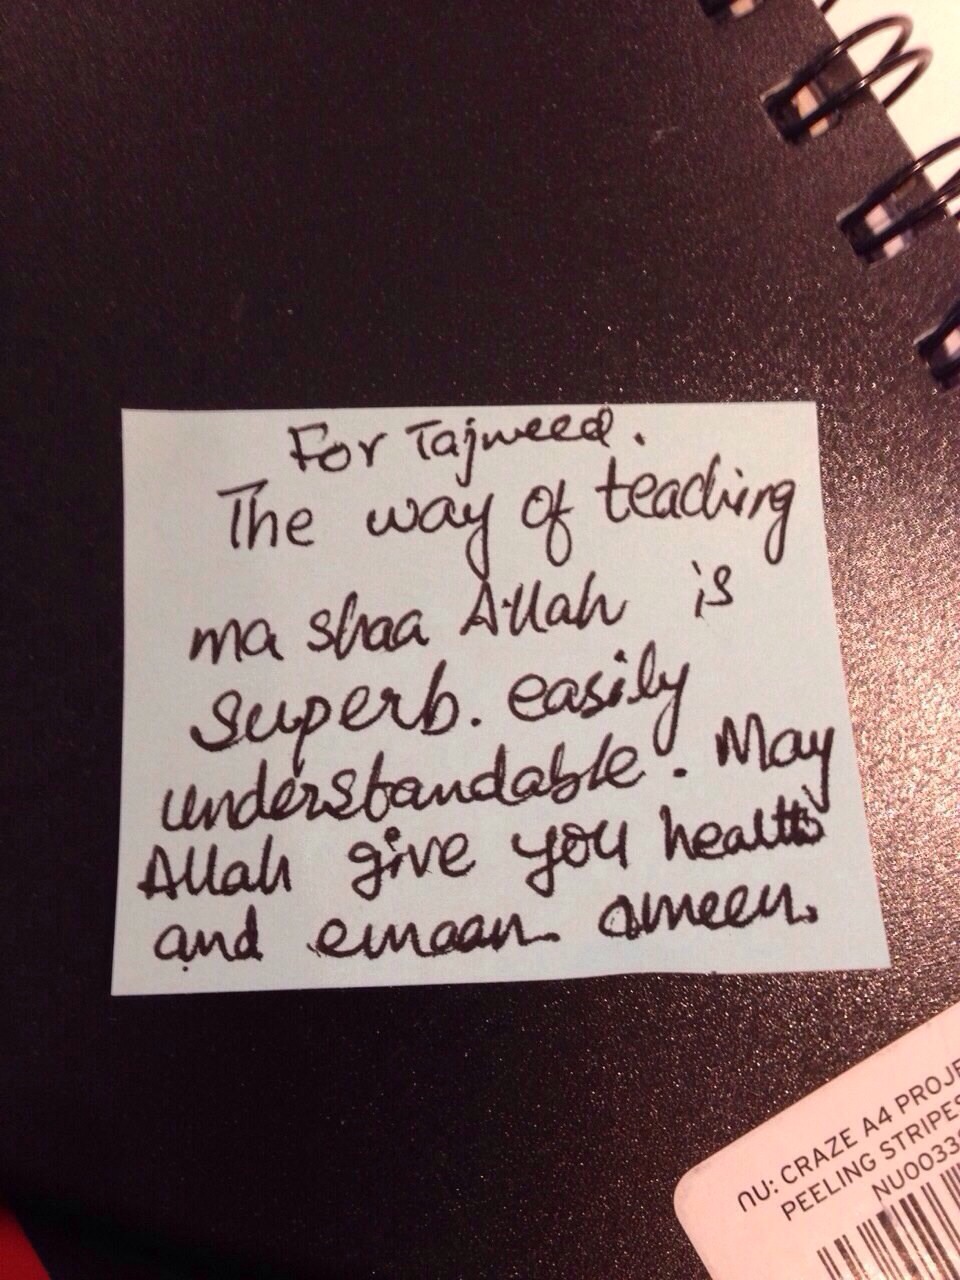 For Tajweed.
The way of teaching
ma shaa Allah is
superb. easily
understandable. May
Allah give you health
and emaan ameen.
nu: CRAZE A4 PROJE
PEELING STRIPES
NU0033